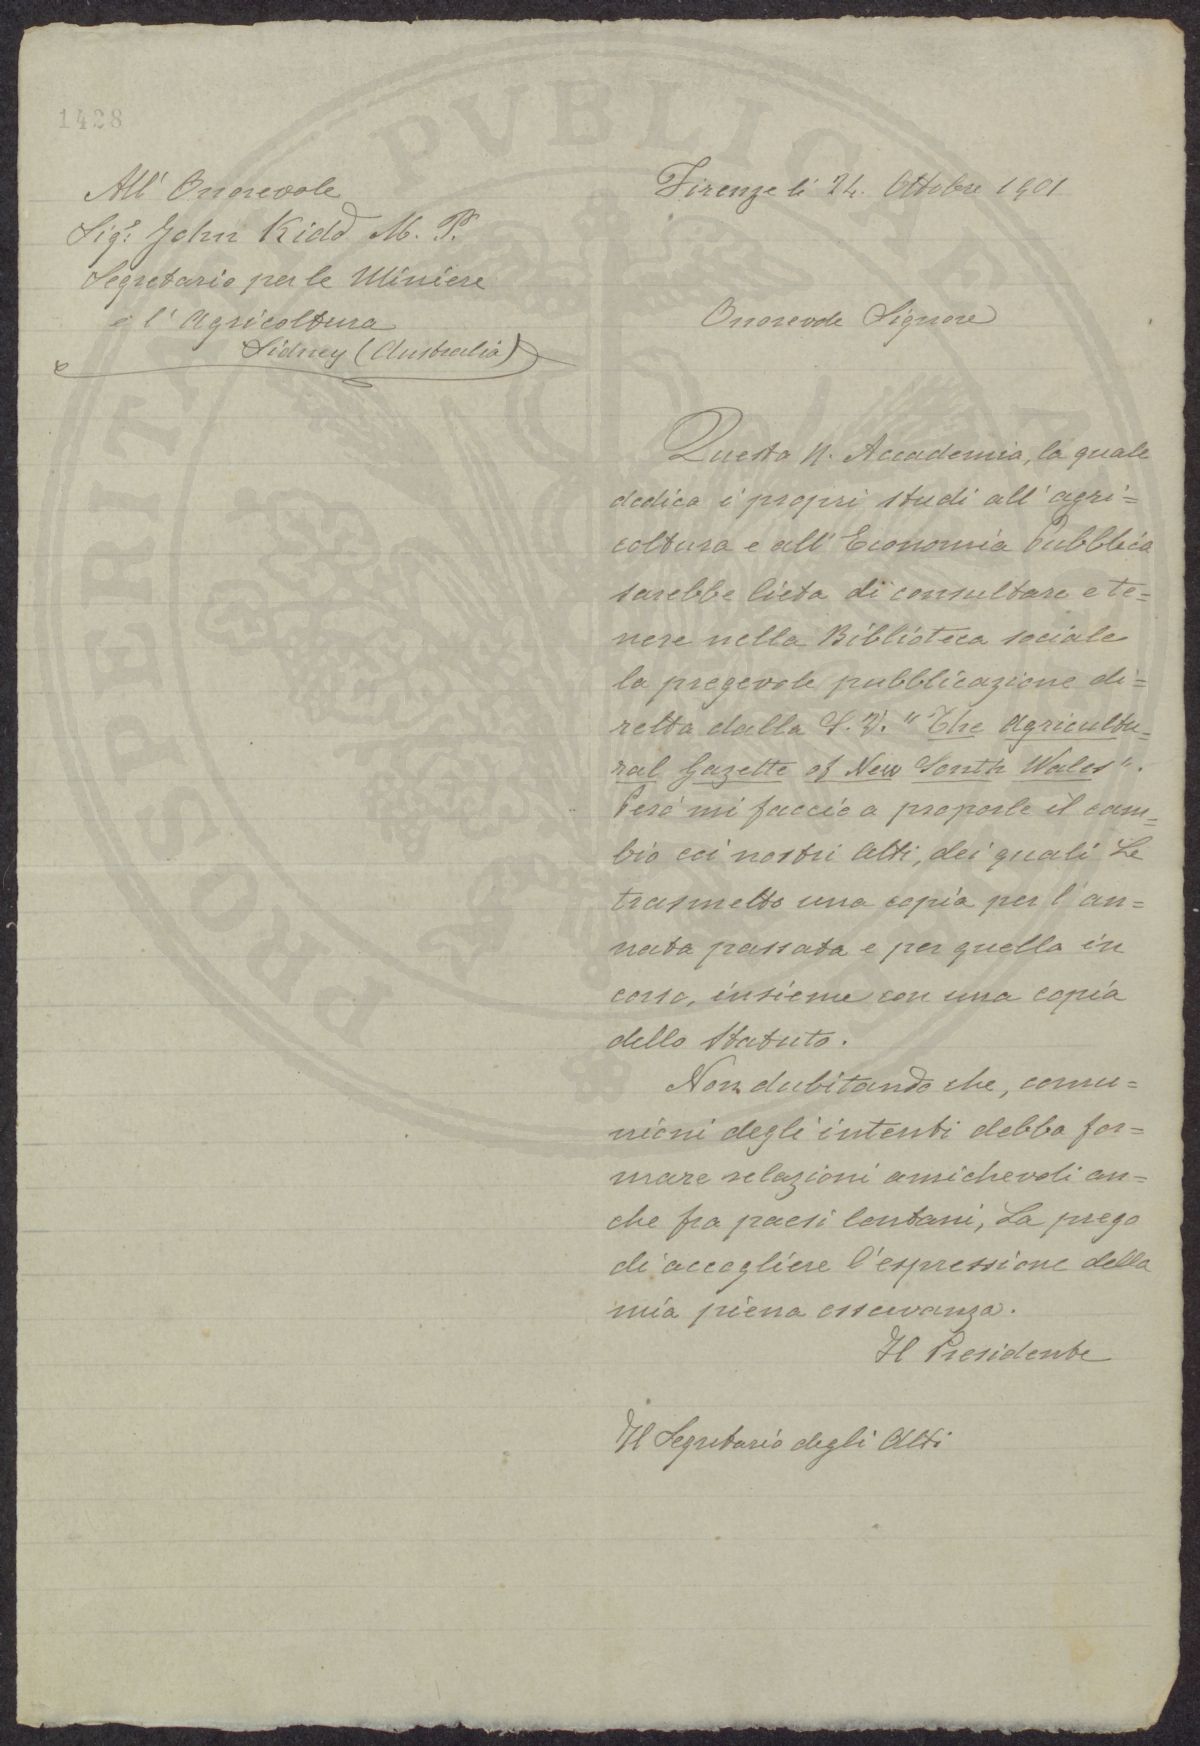 1428
All' Onorevole
Sigr. John Kidd M. P.
Segretario per le Miniere
e l'Agricoltura
Sidney (Australia)
Firenze li 24. Ottobre 1901
Onorevole Signore
Questa R. Accademia, la quale
dedica i propri studi all'agri=
coltura e all'Economia Pubblica
sarebbe lieta di consultare e te=
nere nella Biblioteca sociale
la pregevole pubblicazione di=
retta dalla S. V. "The Agricultu=
ral Gazette of New South Wales".
Però mi faccio a proporle il cam=
bio coi nostri Atti, dei quali Le
trasmetto una copia per l'an=
nata passata e per quella in
corso, insieme con una copia
dello Statuto.
Non dubitando che, comu=
nioni degli intenti debba for=
mare relazioni amichevoli an=
che fra paesi lontani, La prego
di accogliere l'espressione della
mia piena osservanza.
Il Presidente
Il Segretario degli Atti
PROSPERITÀ PVBLICA